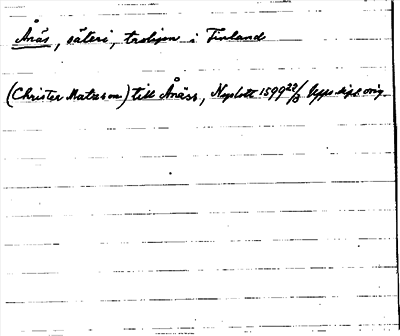 Ånäs, säteri, troligen i Finland
(Christer Matsson) till Ånäss, Nyslott 1599 22/3 Upps dipl orig.